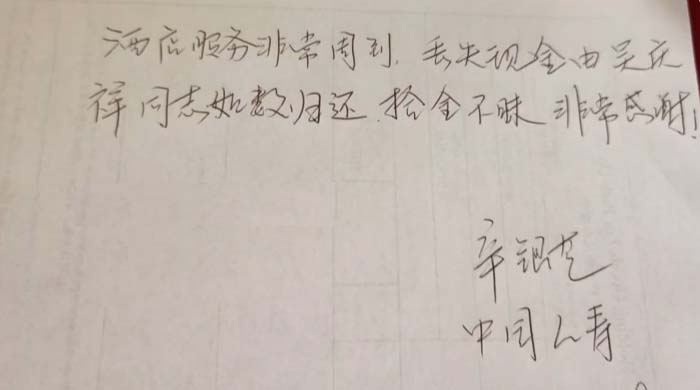 酒店服务非常周到，丢失现金由吴庆
祥同志如数归还，拾金不昧 非常感谢！
辛银
中国人寿